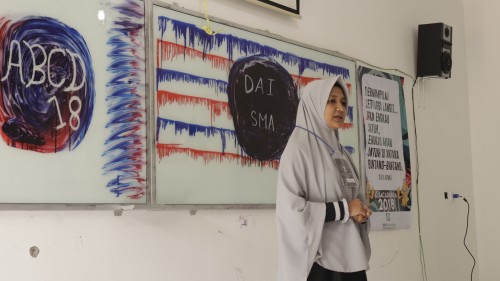 ABCD
18
DAI
SMA
BERMIMPILAH
SETINGGI LANGIT..
ENGKAU
JATUH,
ENGKAU AKAN
JATUH DI ANTARA
BINTANG-BINTANG
2018